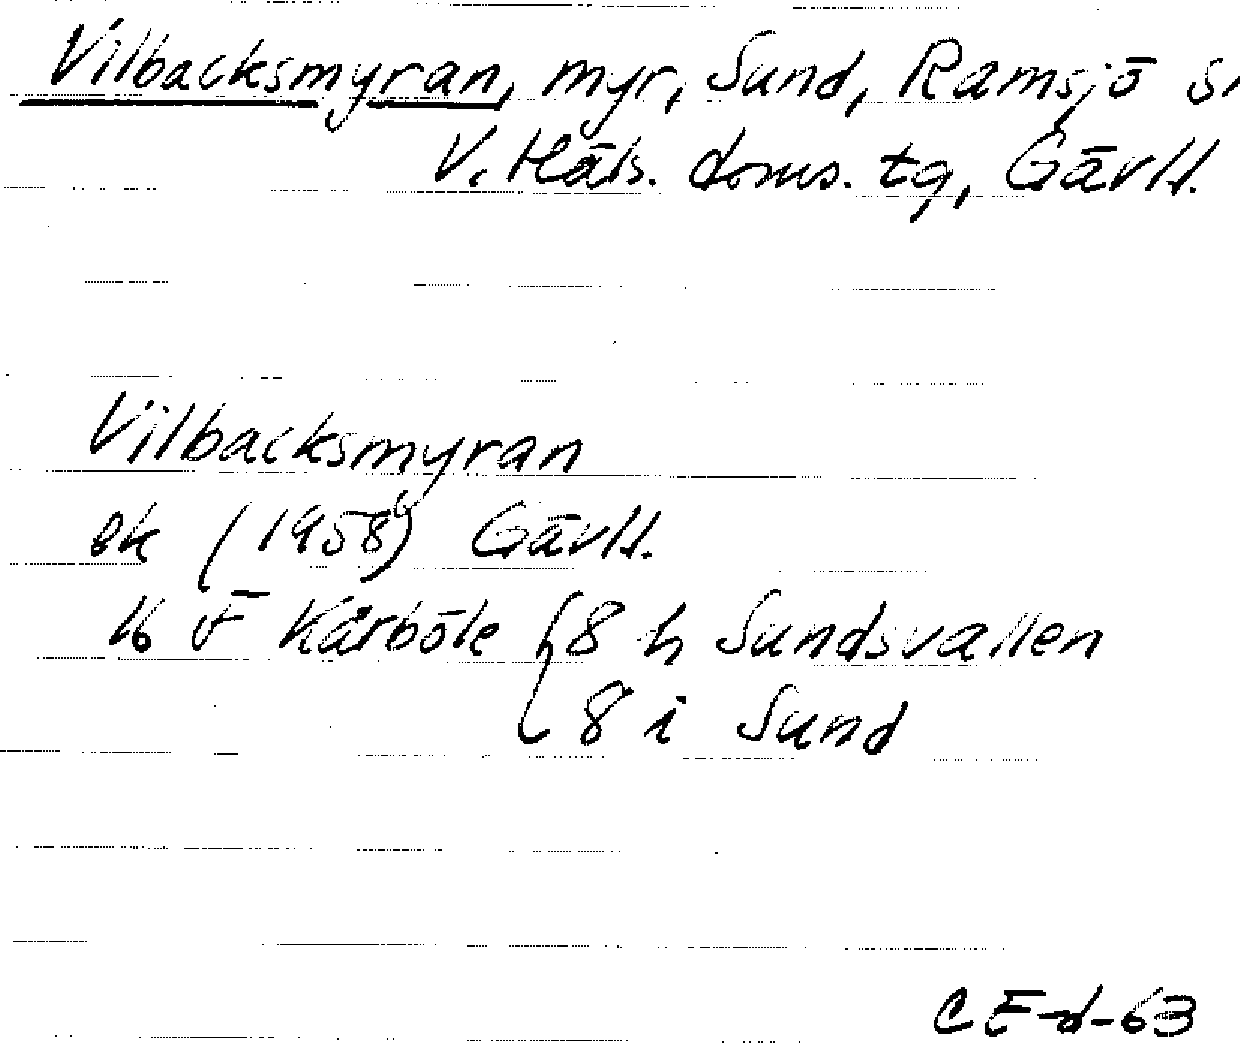 Vilbacksmyran, myr, Sund, Ramsjö
V. Häls. doms. tg, Gävl l.
Vilbacksmyran
ek (1958) Gävl l.
16 F Kårböle { 8 h Sundsvallen
8 i Sund
CE-d-63